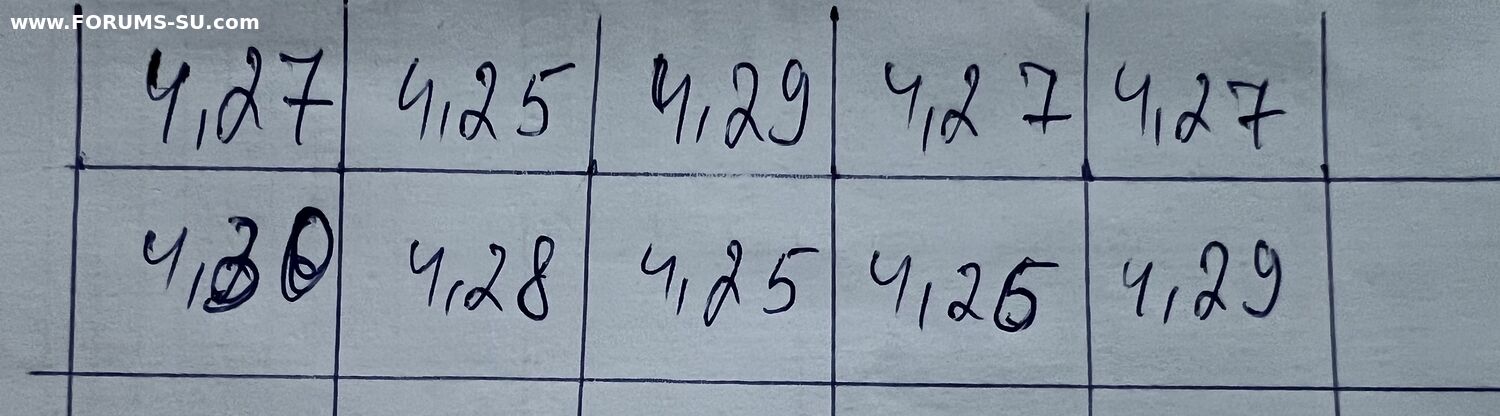 www.FORUMS-SU.com
4,27 4,25 4,29 4,27 4,27
4,30 4,28 4,25 4,26 4,29